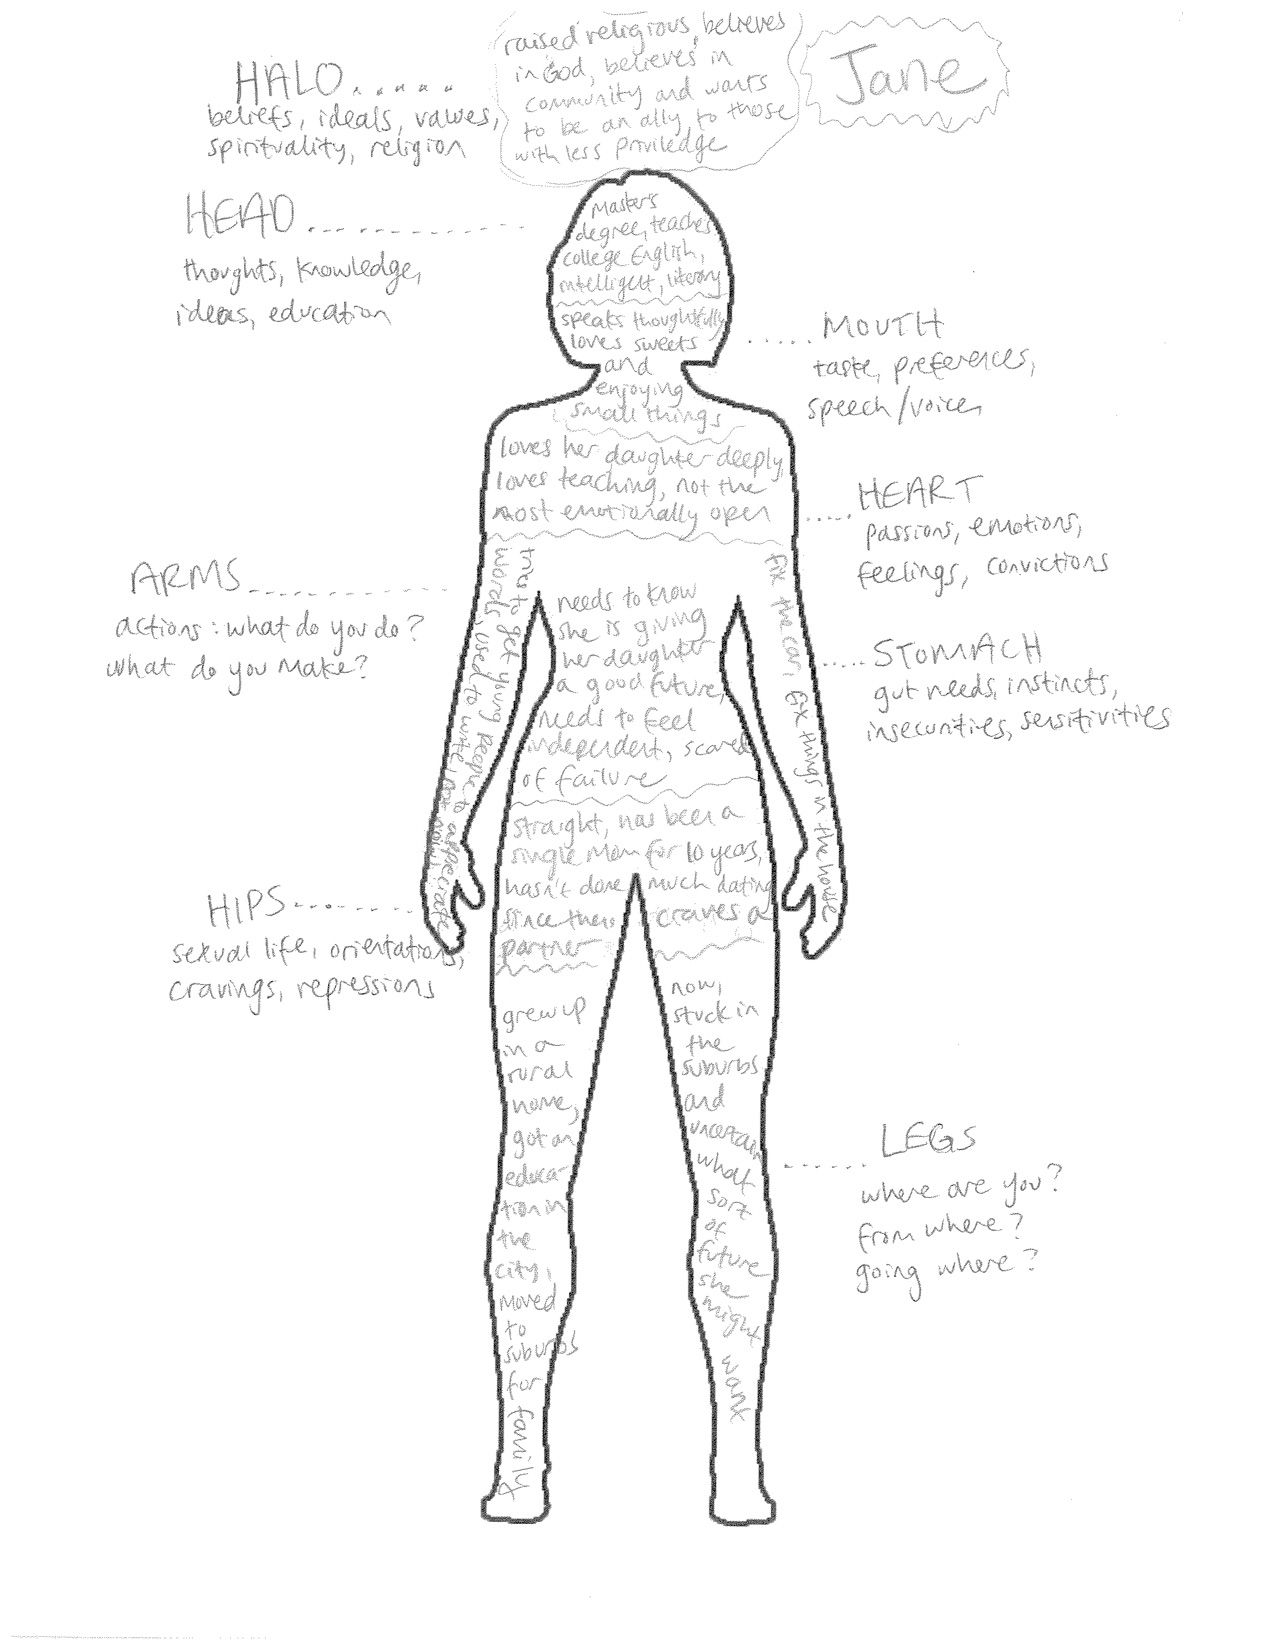 raised religious, believes
in God, believes in
community and wants
to be an ally to those
with less priviledge
Jane
HALO......
beliefs, ideals, values,
spirituality, religion
HEAD
thoughts, knowledge,
ideas, education
Master's
degree, teaches
college English,
intelligent, literary
speaks thoughtfully
loves sweets
and
enjoying
small things
MOUTH
taste, preferences,
speech/voice
loves her daughter deeply,
loves teaching, not the
most emotionally open
HEART
passions, emotions,
feelings, convictions
ARMS
actions: what do you do?
what do you make?
tries to get young people to appreciate
words, used to write, not now
fix the car, fix things in the house
needs to know
she is giving
her daughter
a good future,
needs to feel
independent, scared
of failure
STOMACH
gut needs, instincts,
insecurities, sensitivities
straight, has been a
single mom for 10 years,
hasn't done much dating
since then, craves a
partner
HIPS
sexual life, orientations,
cravings, repressions
grew up
in a
rural
home,
got an
educa-
tion in
the
city,
moved
to
suburbs
for family
now,
stuck in
the
suburbs
and
uncertain
what
sort
of
future
she
might
want
LEGS
where are you?
from where?
going where?